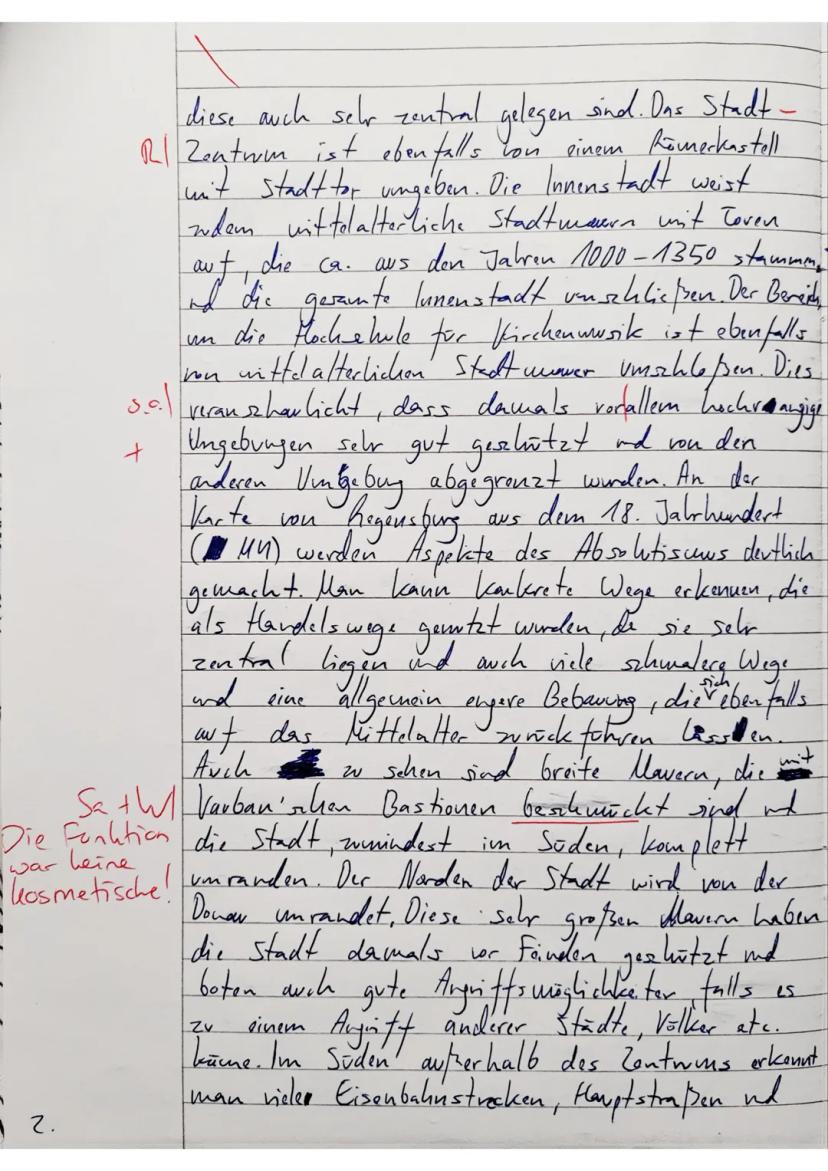 diese auch sehr zentral gelegen sind. Das Stadt-
R| Zentrum ist ebenfalls von einem Römerkastell
mit Stadttor umgeben. Die Innenstadt weist
zudem mittelalterliche Stadtmauern mit Toren
auf, die ca. aus den Jahren 1000-1350 stammen,
und die gesamte Innenstadt umschließen. Der Bereich
um die Hochschule für Kirchenmusik ist ebenfalls
von mittelalterlichen Stadtmauer umschloßen. Dies
s.o.| veranschaulicht, dass damals vor|allem hochrangige
+ Umgebungen sehr gut geschützt und von den
anderen Umgebung abgegrenzt wurden. An der
Karte von Regensburg aus dem 18. Jahrhundert
(M4) werden Aspekte des Absolutismus deutlich
gemacht. Man kann konkrete Wege erkennen, die
als Handelswege genutzt wurden, da sie sehr
zentral liegen und auch viele schmalere Wege
und eine allgemein engere Bebauung, die sich ebenfalls
auf das Mittelalter zurückführen lassen.
Auch zu sehen sind breite Mauern, die mit
Sa + W| Vauban'schen Bastionen beschmückt sind und
Die Funktion die Stadt, zumindest im Süden, komplett
war keine umranden. Der Norden der Stadt wird von der
kosmetische! Donau umrandet. Diese sehr großen Mauern haben
die Stadt damals vor Feinden geschützt und
boten auch gute Angriffsmöglichkeiten, falls es
zu einem Angriff anderer Städte, Völker etc.
käme. Im Süden außerhalb des Zentrums erkennt
man viele Eisenbahnstrecken, Hauptstraßen und
2.